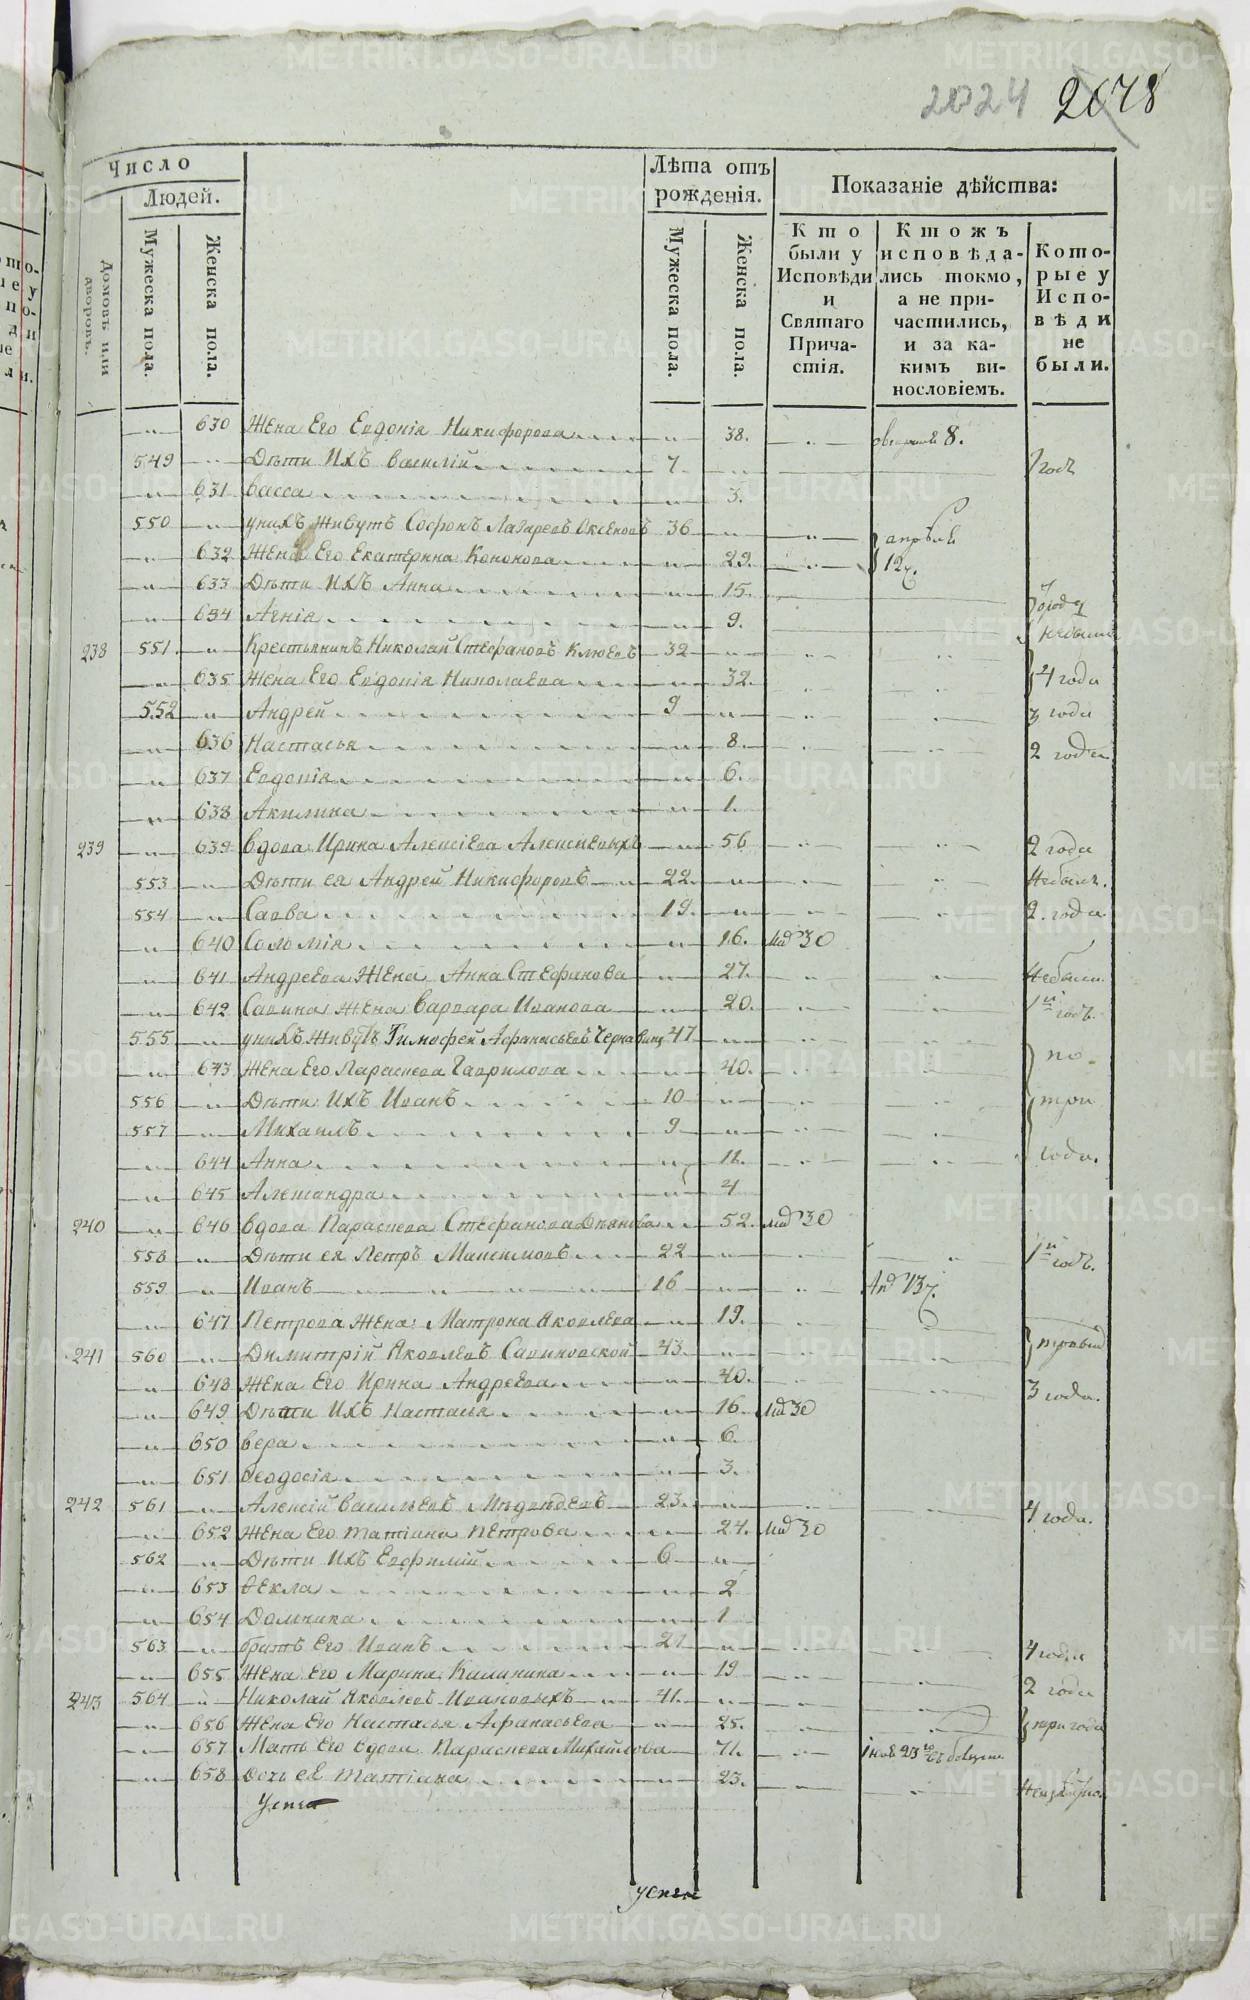 2024 2078
Число
Людей.
Домовъ или дворовъ.
Мужеска пола.
Женска пола.
Лѣта отъ рожденія.
Мужеска пола.
Женска пола.
Показаніе дѣйства:
Кто были у Исповѣди и Святаго Прича-стія.
Ктожъ исповѣда-лись токмо, а не при-частились, и за ка-кимъ ви-нословіемъ.
Кото-рые у Испо-вѣди не были.
630 Жена Его Евдокія Никифорова 38. 8.
549 Дѣти Ихъ Василій 7 1 годъ
631 Васса 3.
550 у нихъ живутъ Софонъ Лазаревъ Аксеновъ 36 апрѣля
632 Жена Его Екатерина Кононова 29. 12
633 Дѣти Ихъ Анна 15.
634 Агнія 9. небыли
238 551 Крестьянинъ Николай Стефановъ Клюевъ 32
635 Жена Его Евдокія Николаева 32. 4 года
552 Андрей 9 3 года
636 Настасья 8. 2 года
637 Евдокія 6.
638 Акилина 1.
239 639 вдова Ирина Алексіева Алексіевыхъ 56 2 года
553 Дѣти ея Андрей Никифоровъ 22 Небылъ.
554 Савва 19. 2. года
640 Соломія 16. 30
641 Андреева Жена Анна Стефанова 27. Небыла
642 Савина Жена Варвара Иванова 20. 1й годъ.
555 у нихъ живутъ Тимофей Афанасьевъ 47
643 Жена Его Параскева Гаврилова 40. по
556 Дѣти Ихъ Иванъ 10 три
557 Михаилъ 9
644 Анна 11. года.
645 Александра 4
240 646 вдова Параскева Стефанова 52. 30
558 Дѣти ея Петръ Максимовъ 22 1й годъ.
559 Иванъ 16 13
647 Петрова Жена Матрона Яковлева 19.
241 560 Димитрій Яковлевъ Савиновской 43. третій
648 Жена Его Ирина Андреева 40. 3 года.
649 Дѣти Ихъ Настасья 16. 30
650 Вера 6.
651 Феодосія 3.
242 561 Алексій Васильевъ 23. 4 года.
652 Жена Его Татіана Петрова 24. 30
562 Дѣти Ихъ Евфимій 6
653 Ѳекла 2
654 Домника 1
563 братъ Его Иванъ 21 4 года
655 Жена Его Марина Калинина 19 2 года
243 564 Николай Яковлевъ Ивановыхъ 41.
656 Жена Его Настасья Афанасьева 25. три года
657 Мать Его вдова Параскева Михайлова 71. 23
658 Дочь ея Татіана 23.